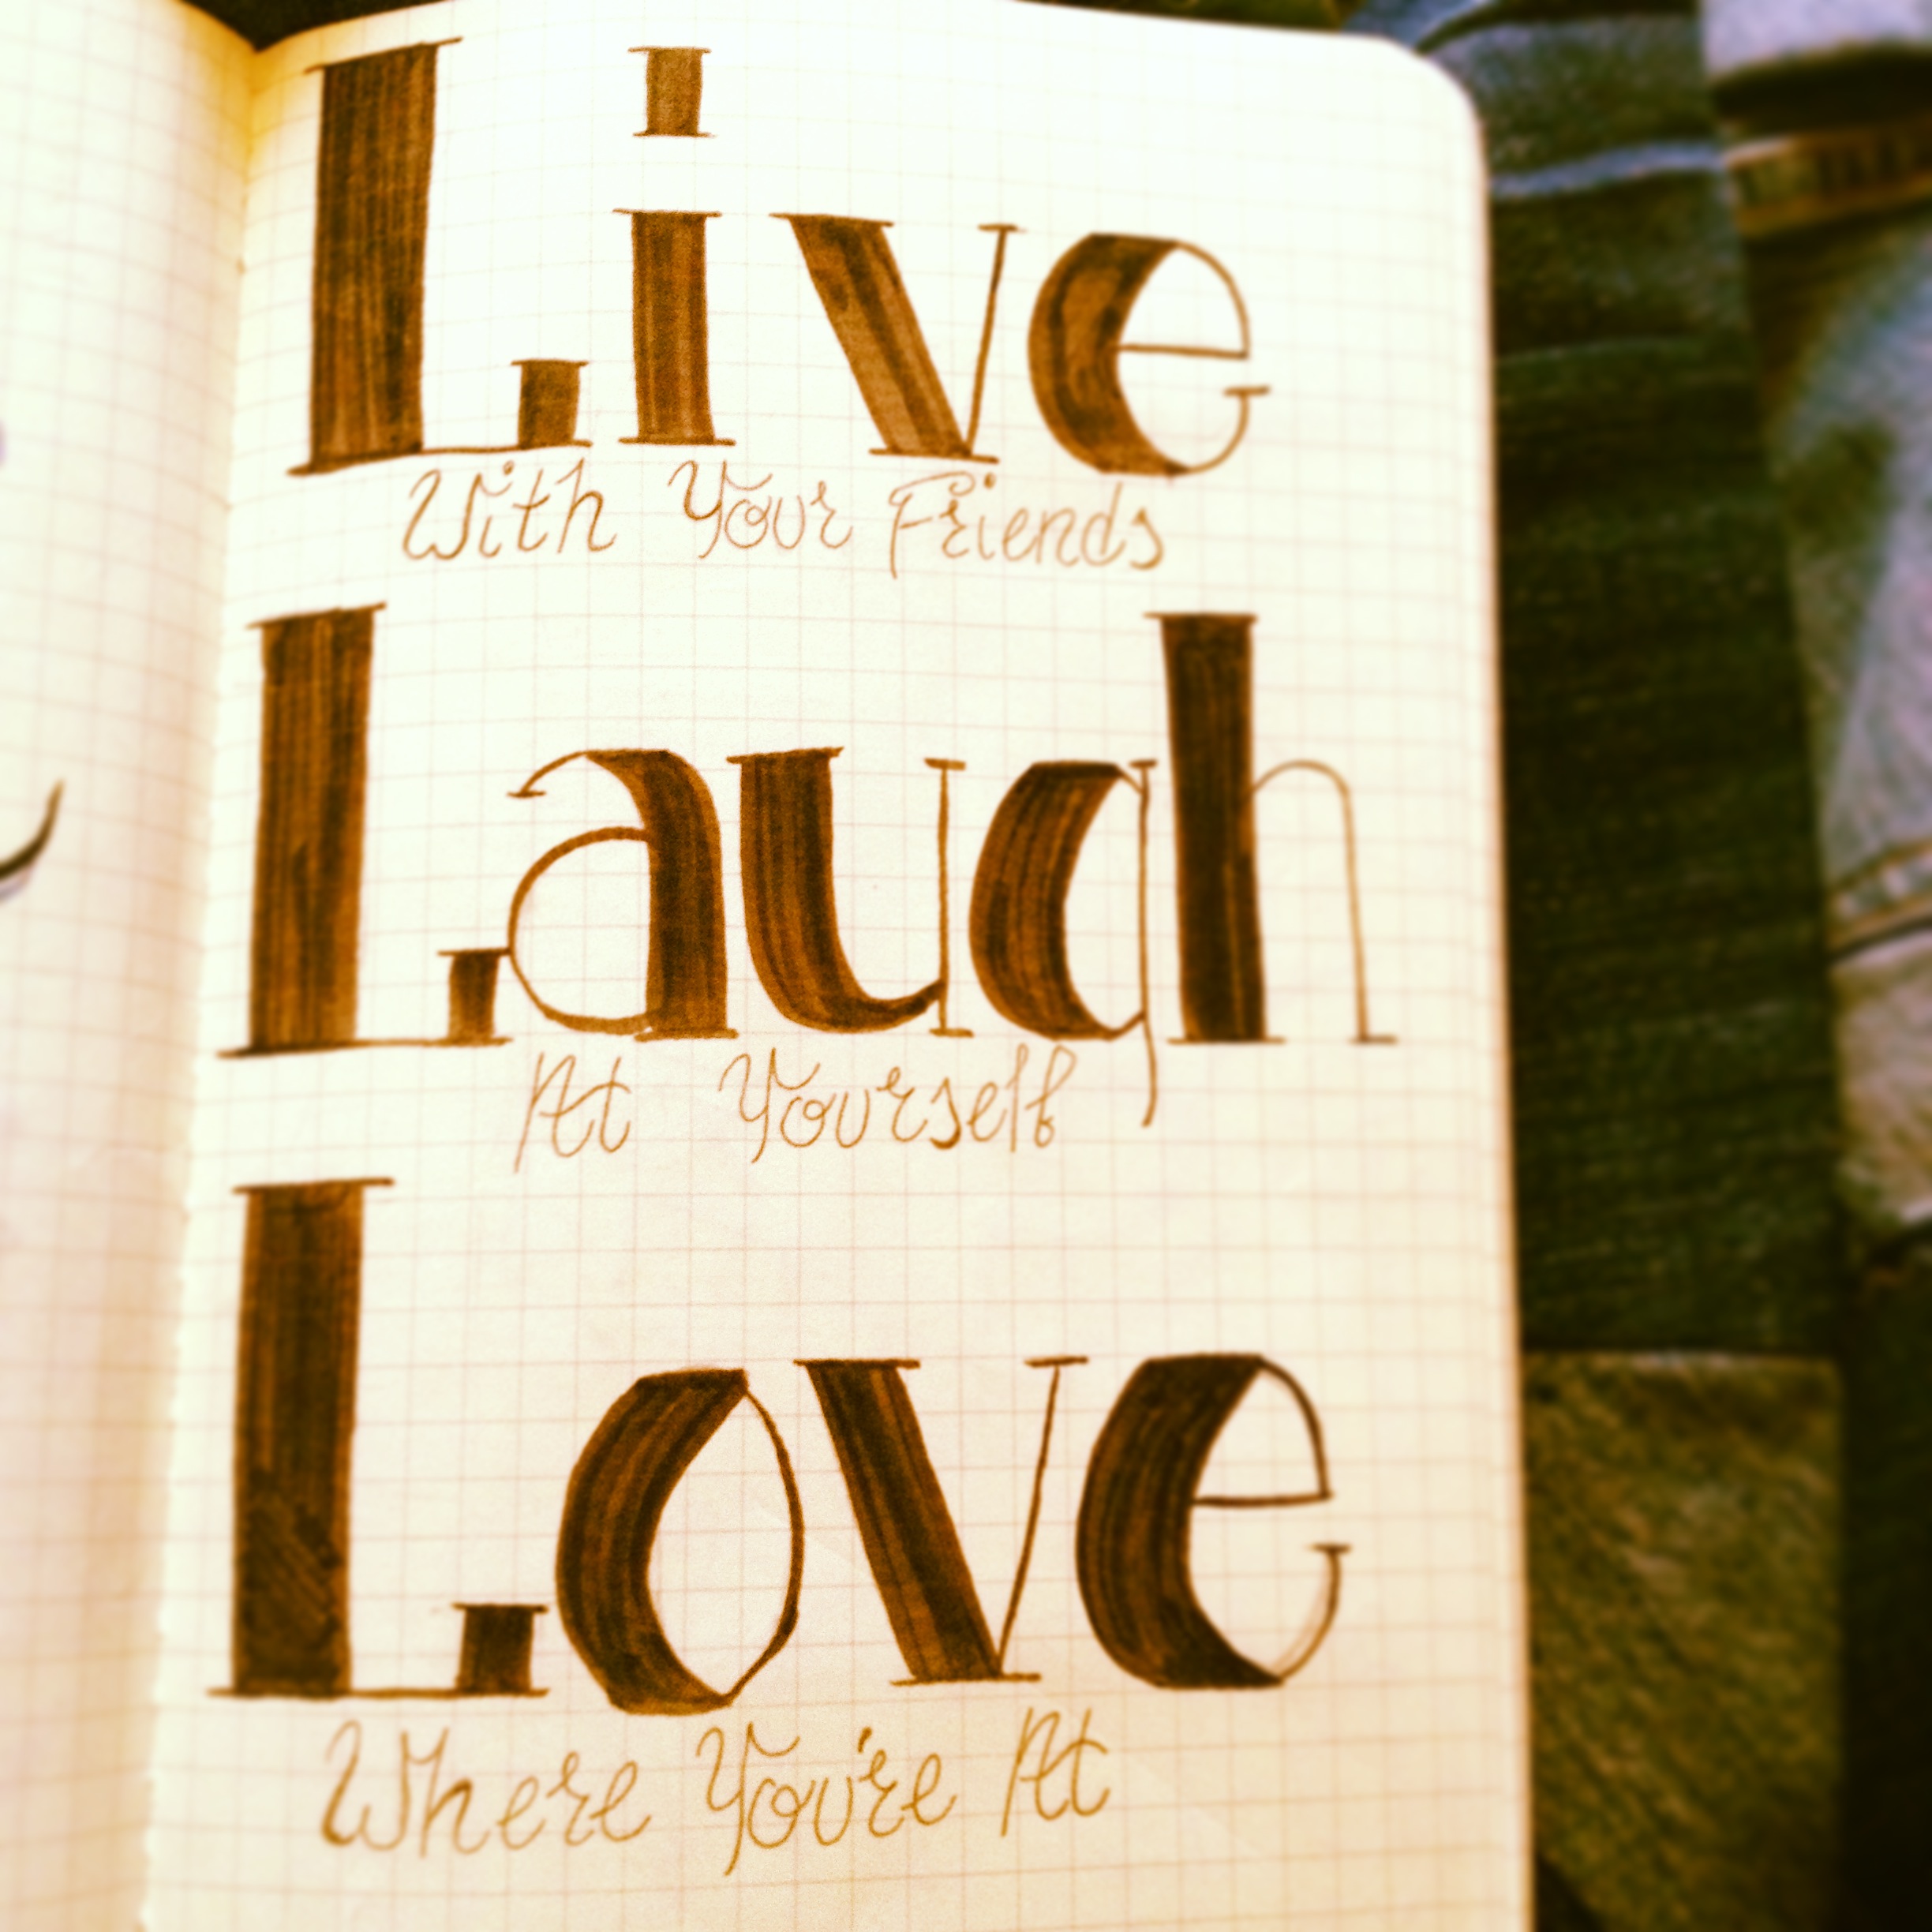 Live
With Your Friends
Laugh
At Yourself
Love
Where You're At